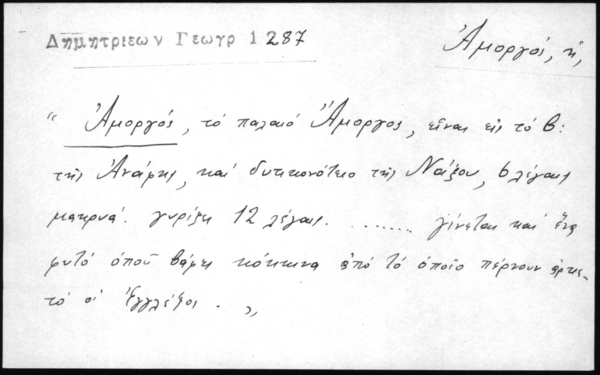 Δημητριεων Γεωγρ 1 287
Ἀμοργός, ἡ,
“ Ἀμοργός, τὸ παλαιό Ἄμοργος, εἶναι εἰς τὸ β:
τῆς Ἀνάφης, καί δυτικονότειο τῆς Νάξου, 6 λέγαις
μακρυά. γυρίζει 12 λέγαις. ........ γίνεται καί ἕνα
φυτό ὁποῦ βάφει κόκκινα ἀπό τό ὁποῖο πέρνουν ἀρκε-
τό οἱ Ἐγγλέζοι . „